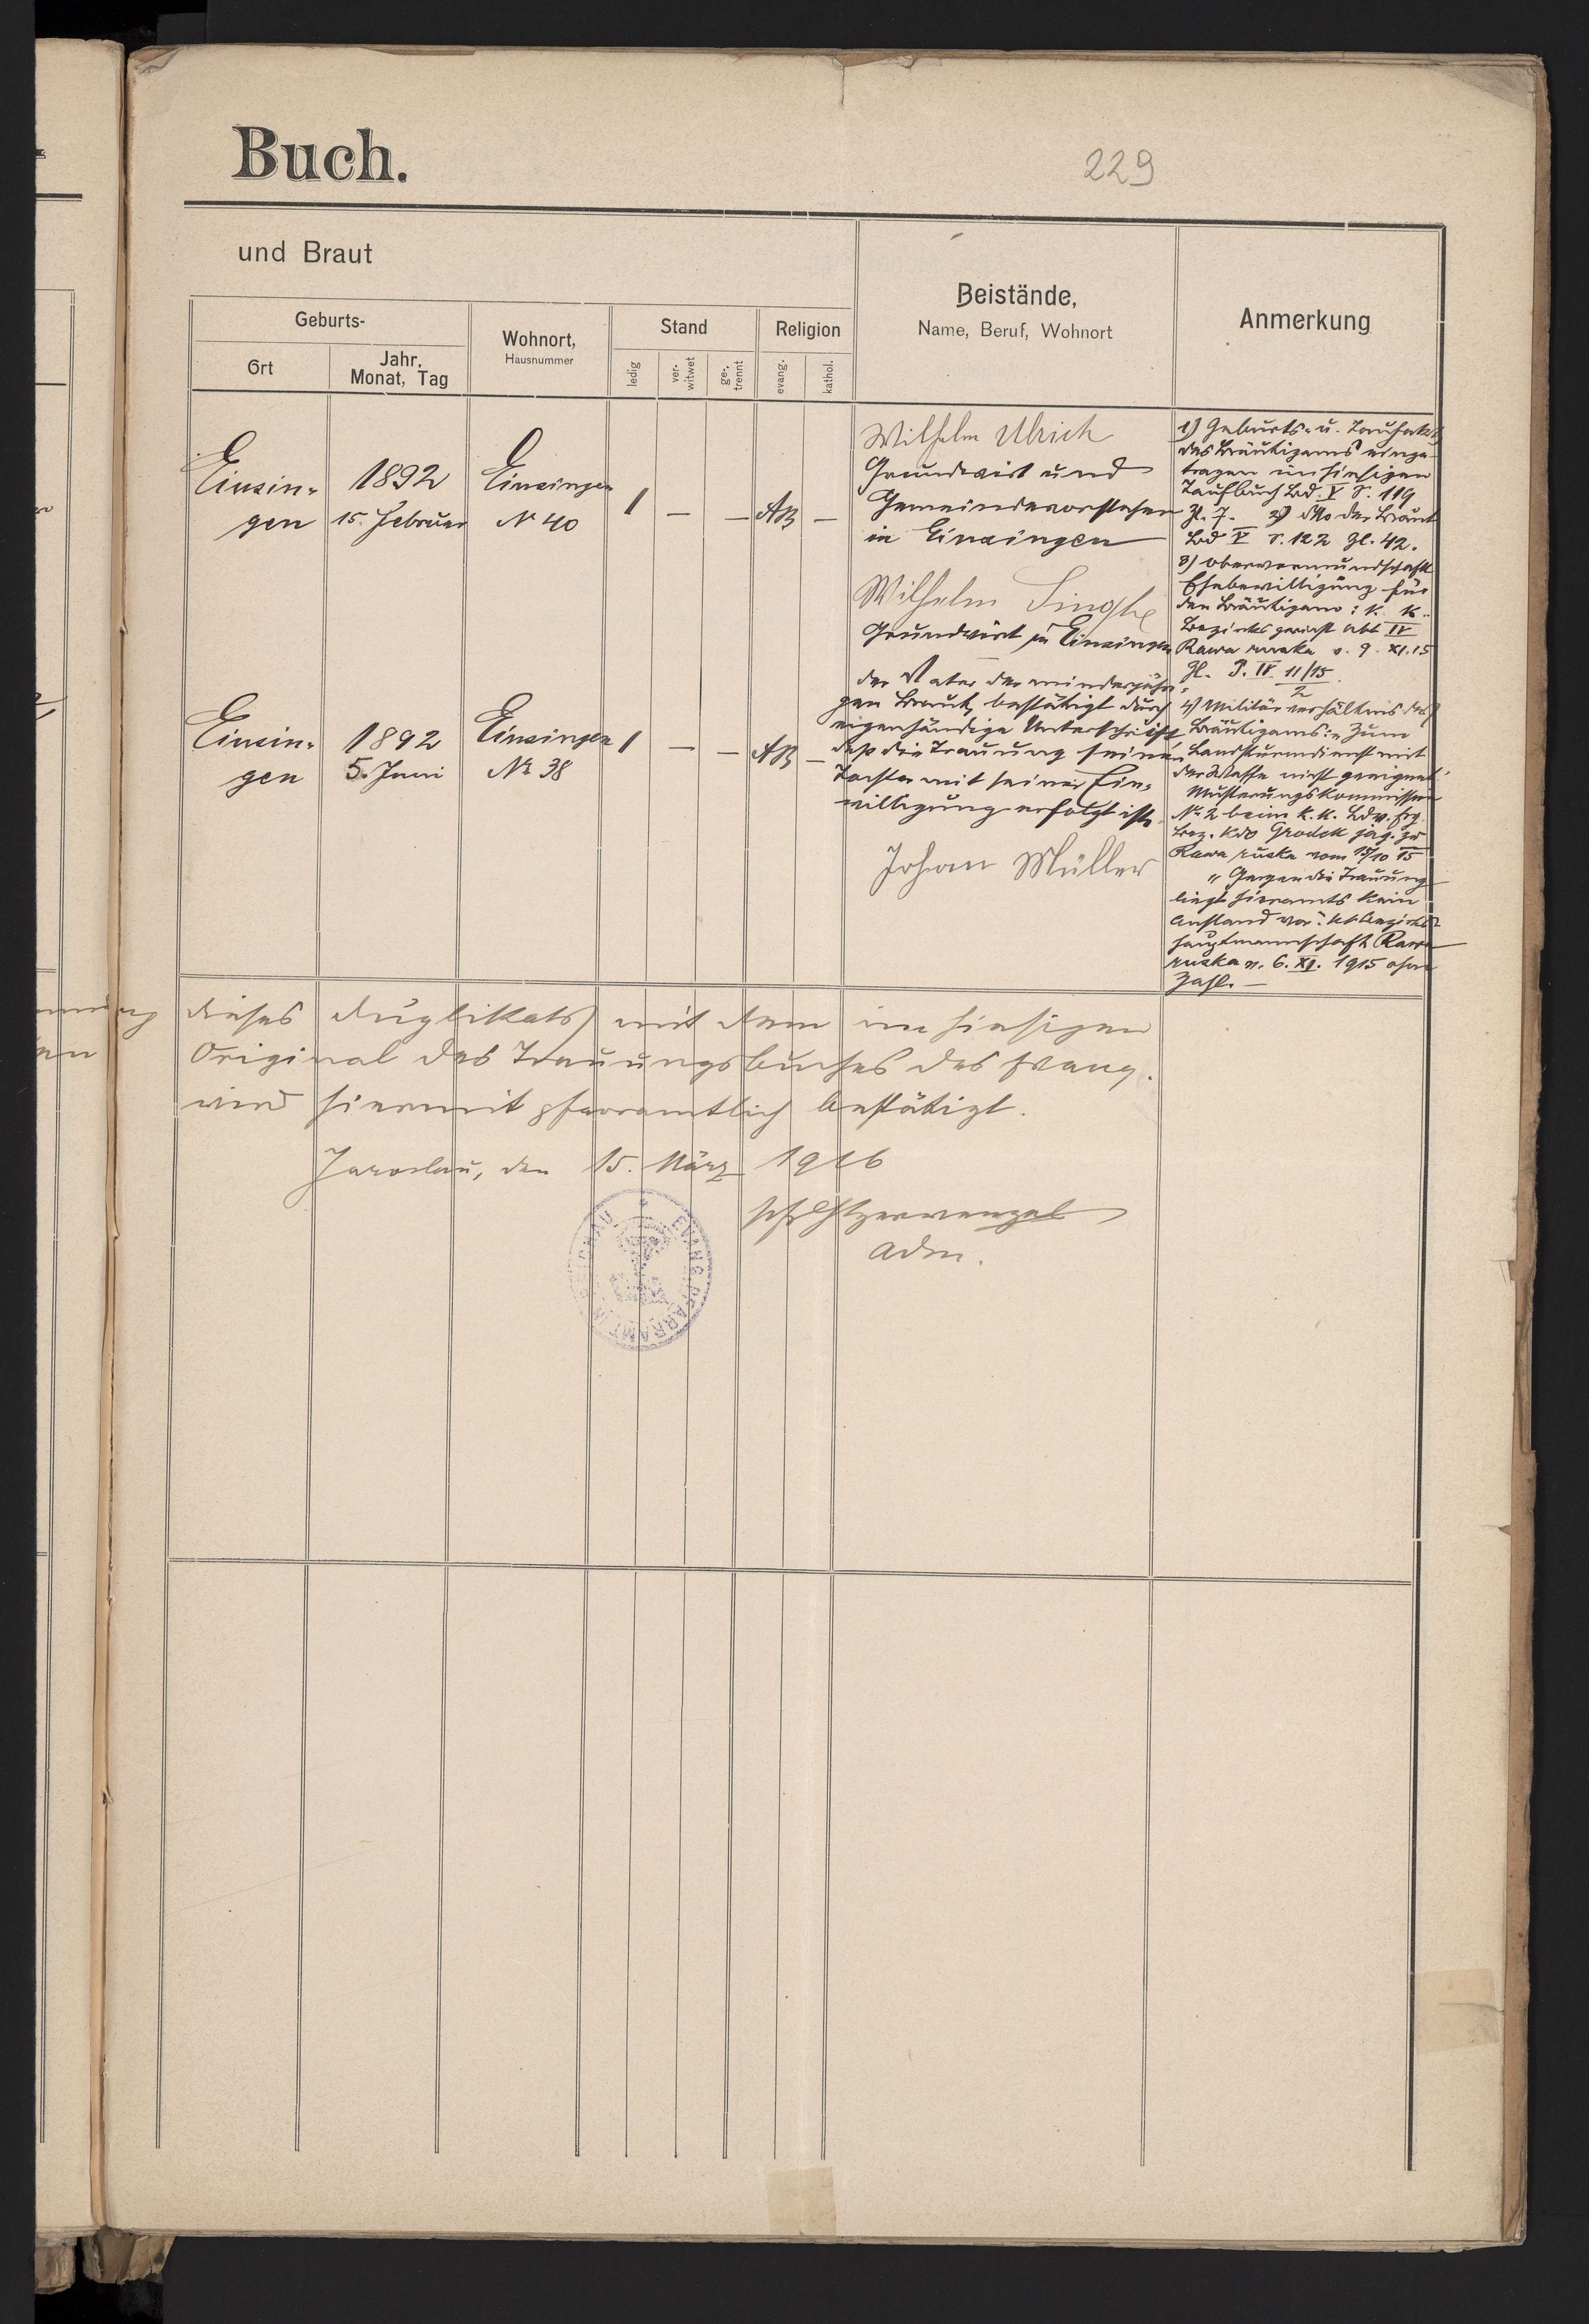 Buch.
229
und Braut
Geburts-
Ort
Jahr,
Monat, Tag
Wohnort,
Hausnummer
Stand
ledig
ver-
witwet
ge-
trennt
Religion
evang.
kathol.
Beistände,
Name, Beruf, Wohnort
Anmerkung
Einsin-
gen
1892
15. Februar
Einsingen
N 40
1
—
—
AB
—
Wilhelm Ulrich
Grundwirt und
Gemeindevorsteher
in Einsingen
Wilhelm
Grundwirt in Einsingen
Einsin-
gen
1892
5. Juni
Einsingen
No 38
1
—
—
AB
—
der Vater der minderjähri-
gen Braut, bestätigt durch
eigenhändige Unterschrift
daß die Trauung seiner
Tochter mit seiner Ein-
willigung erfolgt ist.
Johan Müller
1) Geburts- u. Taufakt
des Bräutigams einge-
tragen im hiesigen
Taufbuch Bd. V S. 119
Zl. 7. 2) dto der Braut
Bd V S. 122 Zl. 42.
3) obervormundschaftl
Ehebewilligung für
den Bräutigam: k. k.
Bezirksgericht Abt IV
Rawa ruska v. 9. XI. 15
Zl. P. IV 11/15
2
4) Militärverhältnis des
Bräutigams: „Zum
Landsturmdienst mit
der Waffe nicht geeignet"
Musterungskommission
No 2 beim k. k. Ldw. Erg.
Bez. Kdo Grodek jag. zu
Rawa ruska vom 15/10 15
„Gegen die Trauung
liegt hieramts kein
Anstand vor". kk Bezirks-
hauptmannschaft Rawa
ruska v. 6. XI. 1915 ohne
Zahl. —
dieses Duplikats mit dem im hiesigen
Original des Trauungsbuches des evang.
wird hiermit pfarramtlich bestätigt.
Jaroslau, den 15. März 1916
Adm.
EVANG. PFARRAMT IN